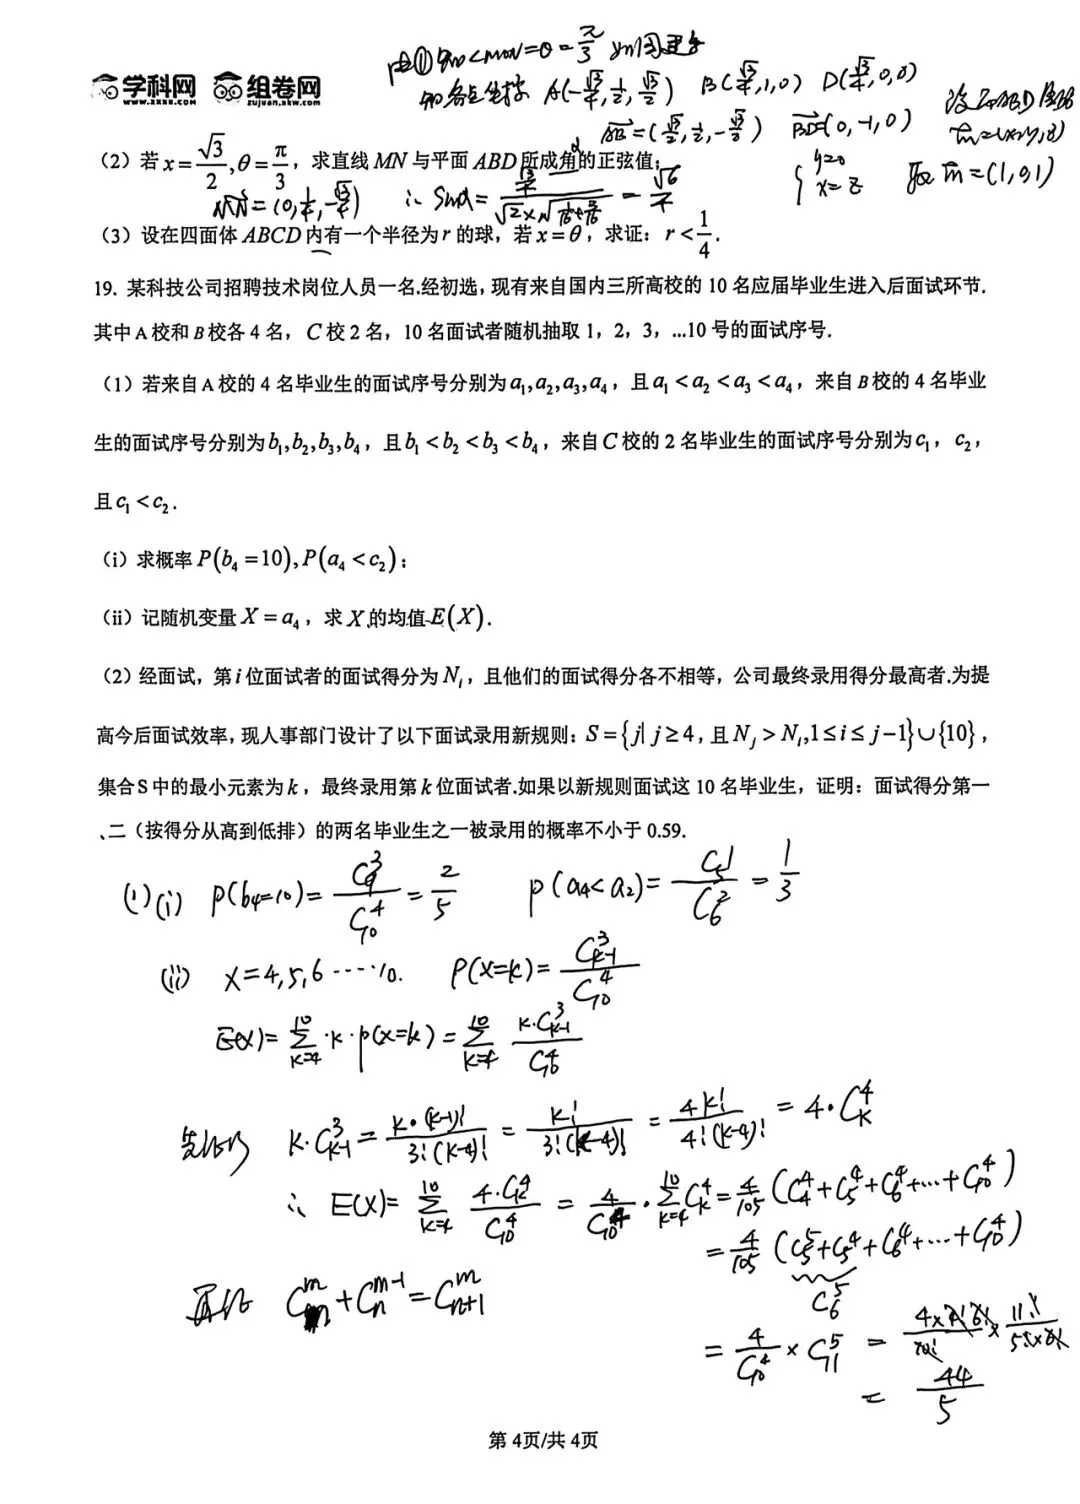 由①知<MON=θ=π/3 如图建系
学科网 组卷网
www.zxxk.com zujuan.xkw.com
知各点坐标 A(-√3/4,1/2,√3/2) B(√3/4,1,0) D(√3/4,0,0)
AB=(√3/2,1/2,-√3/2) BD=(0,-1,0)
m=(x,y,z)
(2)若x=√3/2,θ=π/3,求直线MN与平面ABD所成角的正弦值;
α
{y=0 x=z 取m=(1,0,1)
MN=(0,1/4,-√3/4) ∴ sinα= =√6/4
(3)设在四面体ABCD内有一个半径为r的球,若x=θ,求证:r<1/4.
19. 某科技公司招聘技术岗位人员一名.经初选,现有来自国内三所高校的10名应届毕业生进入后面试环节.
其中A校和B校各4名,C校2名,10名面试者随机抽取1,2,3,...10号的面试序号.
(1)若来自A校的4名毕业生的面试序号分别为a₁,a₂,a₃,a₄,且a₁<a₂<a₃<a₄,来自B校的4名毕业
生的面试序号分别为b₁,b₂,b₃,b₄,且b₁<b₂<b₃<b₄,来自C校的2名毕业生的面试序号分别为c₁,c₂,
且c₁<c₂.
(i)求概率P(b₄=10),P(a₄<c₂);
(ii)记随机变量X=a₄,求X的均值E(X).
(2)经面试,第i位面试者的面试得分为Nᵢ,且他们的面试得分各不相等,公司最终录用得分最高者.为提
高今后面试效率,现人事部门设计了以下面试录用新规则:S={j|j≥4,且Nⱼ>Nᵢ,1≤i≤j-1}∪{10},
集合S中的最小元素为k,最终录用第k位面试者.如果以新规则面试这10名毕业生,证明:面试得分第一
、二(按得分从高到低排)的两名毕业生之一被录用的概率不小于0.59.
(1)(i) P(b₄=10)=C₉³/C₁₀⁴=2/5 P(a₄<a₂)=C₅¹/C₆²=1/3
(ii) X=4,5,6····10. P(X=k)=C³ₖ₋₁/C₁₀⁴
E(X)=∑(k=4→10)·k·P(X=k)=∑(k=4→10) k·C³ₖ₋₁/C₁₀⁴
k·C³ₖ₋₁=k·(k-1)!/3!(k-4)!=k!/3!(k-4)!=4k!/4!(k-4)!=4·Cₖ⁴
∴ E(X)=∑(k=4→10) 4·Cₖ⁴/C₁₀⁴=4/C₁₀⁴·∑(k=4→10)Cₖ⁴=4/105(C₄⁴+C₅⁴+C₆⁴+···+C₁₀⁴)
=4/105(C₅⁵+C₅⁴+C₆⁴+···+C₁₀⁴)
C₆⁵
Cₙᵐ+Cₙᵐ⁻¹=Cₙ₊₁ᵐ
=4/C₁₀⁴×C₁₁⁵=4×4!6!/10!×11!/5!×6!
=44/5
第4页/共4页